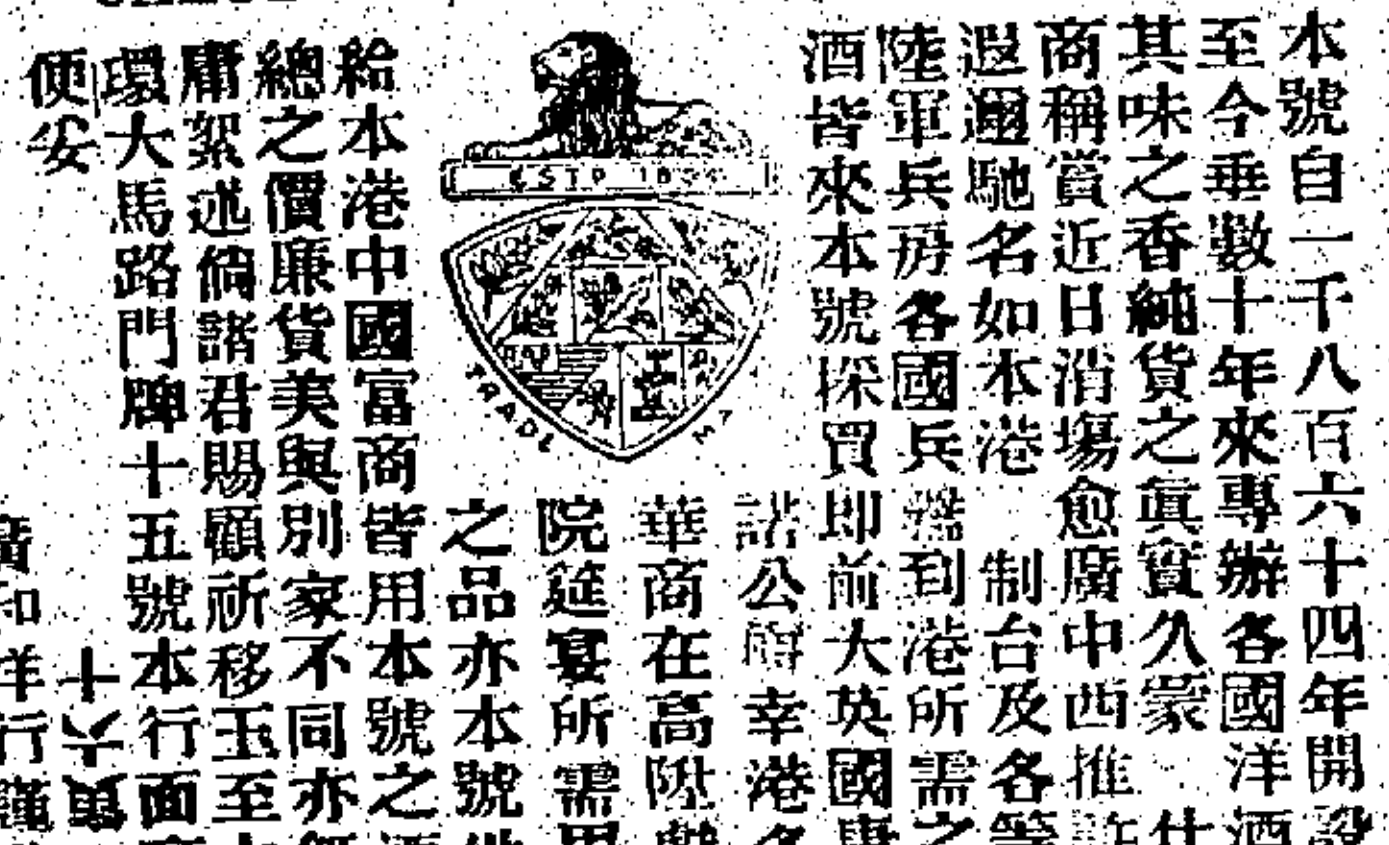 本號自一千八百六十四年開設
至今垂數十年來專辦各國洋酒
其味之香純貨之真實久蒙 仕
商稱賞近日消塲愈廣中西推許
遐邇馳名如本港 制台及各等
陸軍兵房各國兵艦到港所需之
酒皆來本號採買即前大英國康
諾公爵幸港各
華商在高陞戲
院筵宴所需用
之品亦本號供
給本港中國富商皆用本號之酒
總之價廉貨美與別家不同亦無
庸絮述倘諸君賜顧祈移玉至
環大馬路門牌十五號本行面
便妥
十六萬
廣和洋行謹
ESTD 18
TRADE MA